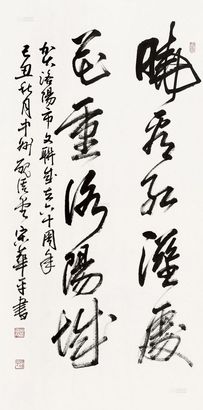 曉看紅濕處
花重洛陽城
賀洛陽市文聯成立六十周年
己丑秋月中州 宋華平書